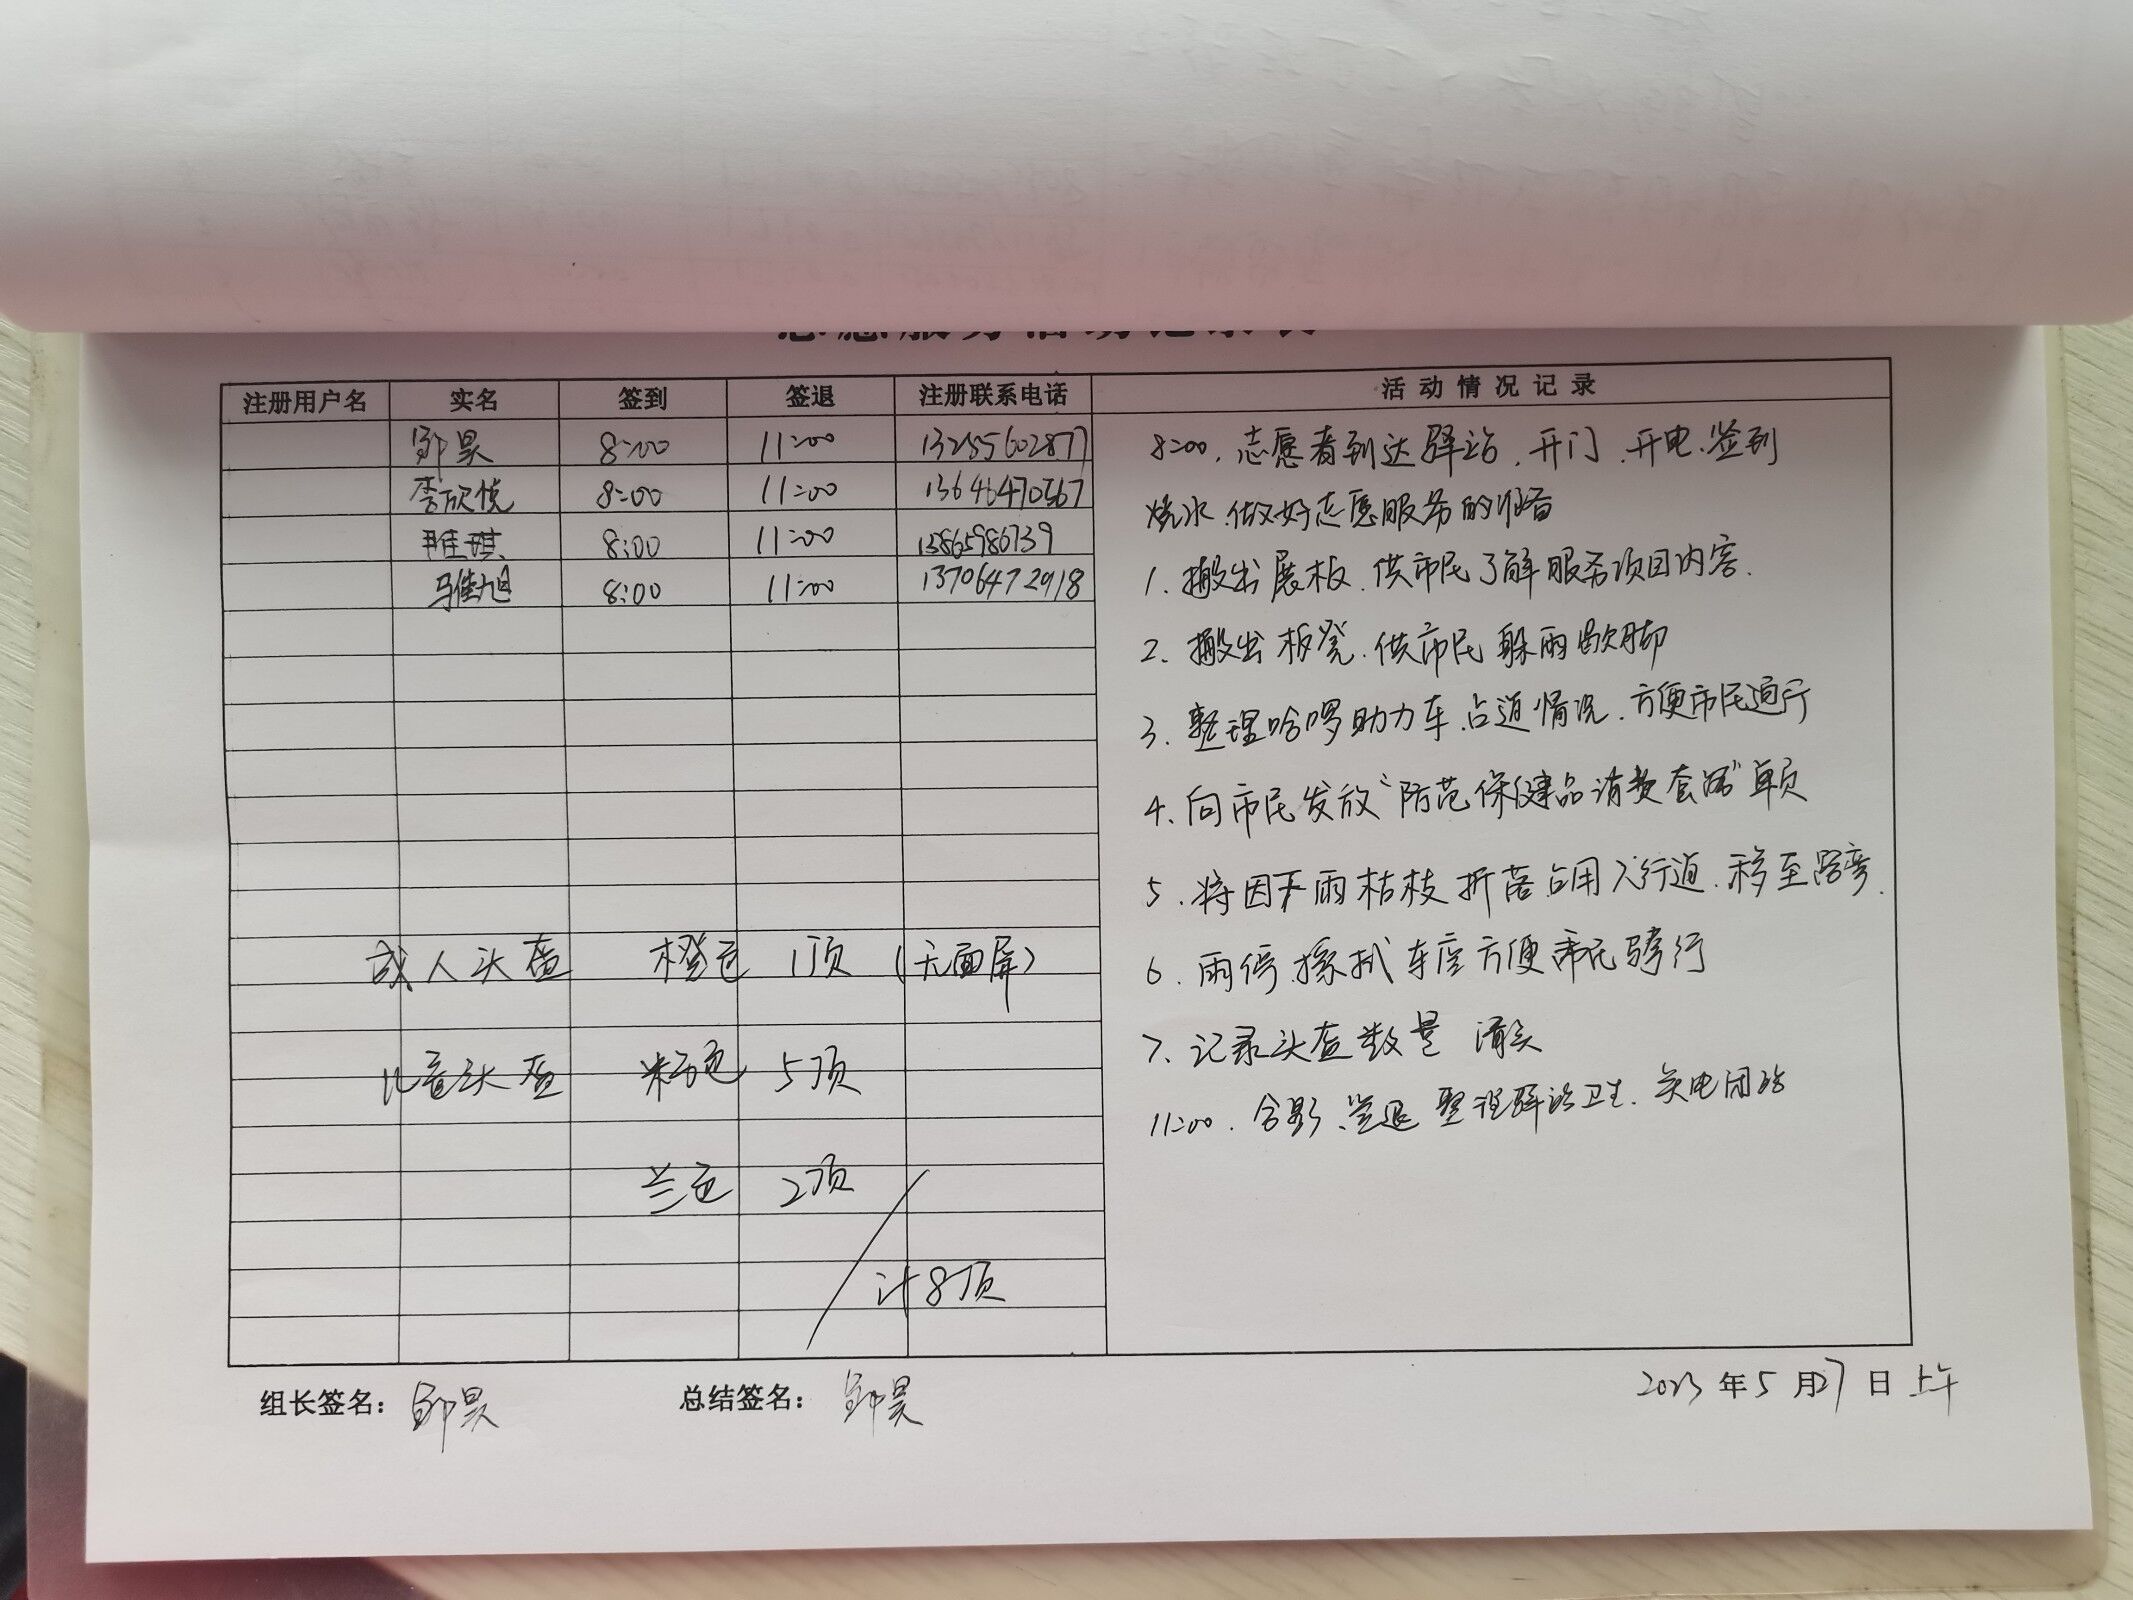 志愿服务活动记录表
注册用户名 实名 签到 签退 注册联系电话 活动情况记录
昊 8:00 11:00 13255602877
李欣悦 8:00 11:00 13646470567
琪 8:00 11:00 13865986739
马佳旭 8:00 11:00 13706472918
成人头盔 橙色 1顶 (无面屏)
儿童头盔 粉色 5顶
兰色 2顶
计8顶
8:00. 志愿者到达驿站、开门、开电、签到
烧水、做好志愿服务的准备
1. 搬出展板、供市民了解服务项目内容.
2. 搬出板凳、供市民躲雨歇脚
3. 整理哈啰助力车、占道情况、方便市民通行
4. 向市民发放“防范保健品消费套路”单页
5. 将因下雨枯枝折落占用人行道、移至路旁.
6. 雨停、擦拭车座方便市民骑行
7. 记录头盔数量 消杀
11:00. 合影、签退 整理驿站卫生、关电闭站
组长签名: 昊 总结签名: 昊 2023年5月27日上午